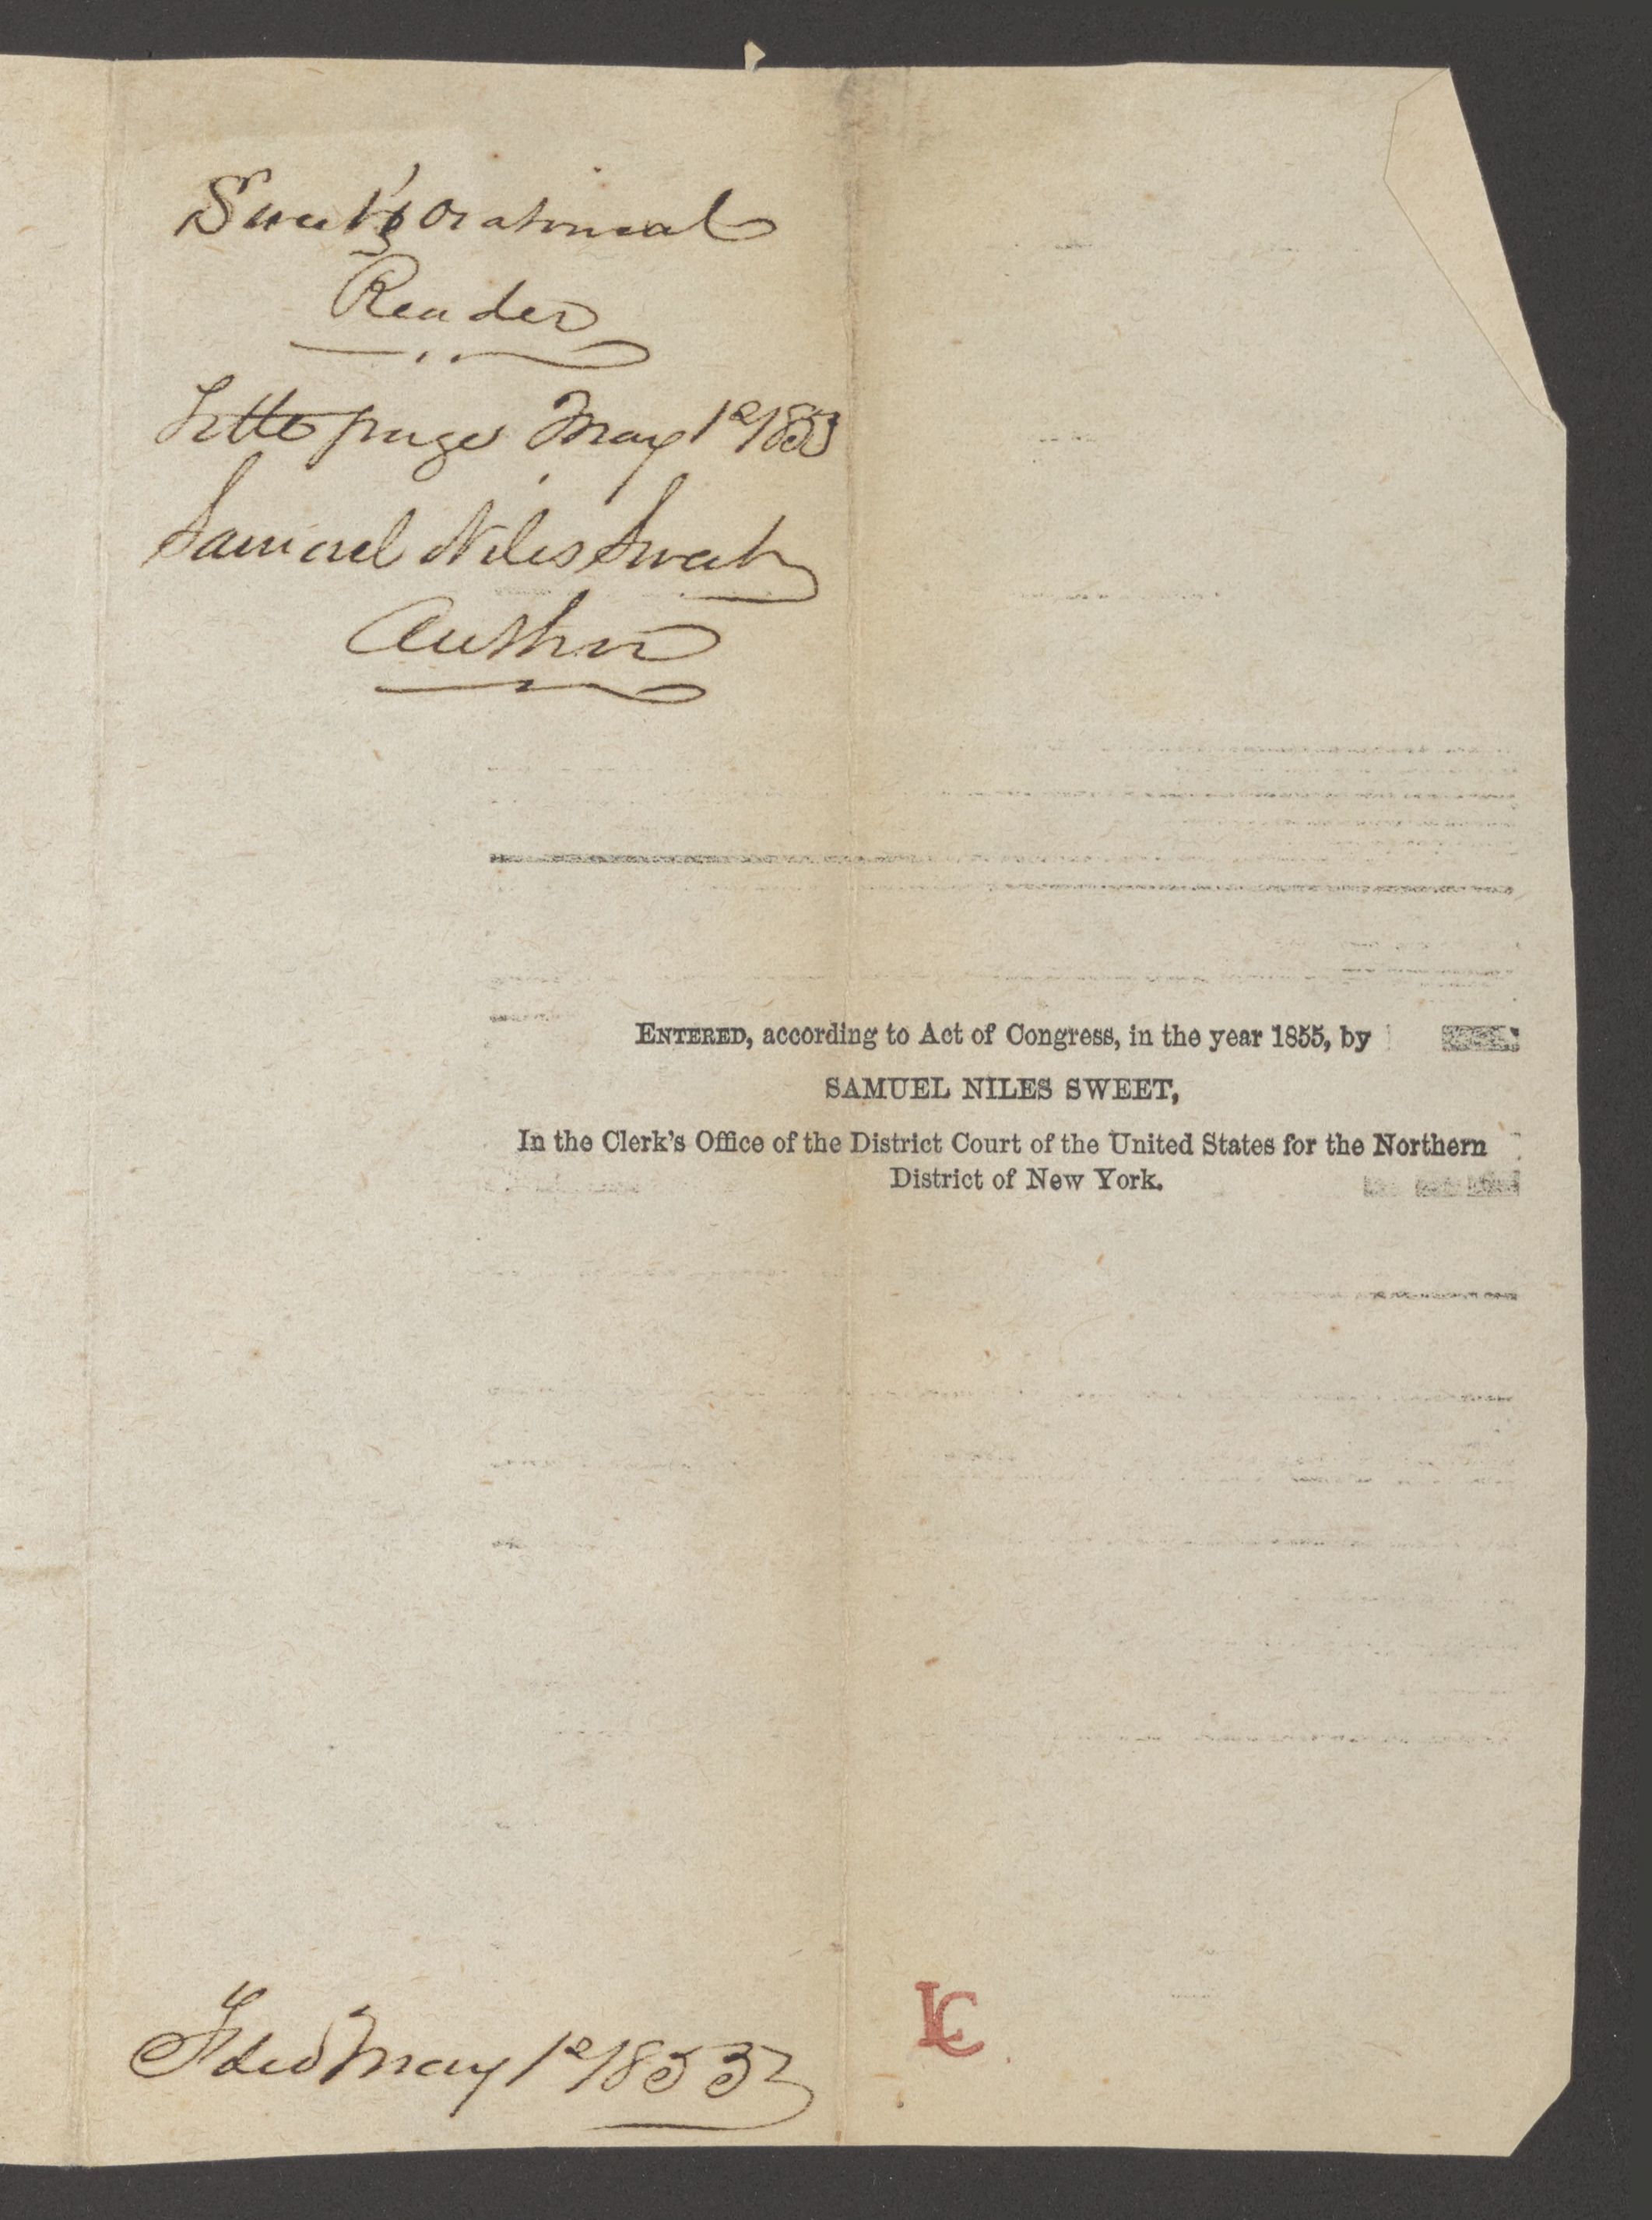 Sweet's Oratorical
Reader
Title page May 1st 1855
Samuel Niles Sweet
Author
ENTERED, according to Act of Congress, in the year 1855, by
SAMUEL NILES SWEET,
In the Clerk's Office of the District Court of the United States for the Northern
District of New York.
Filed May 1st 1855
LC